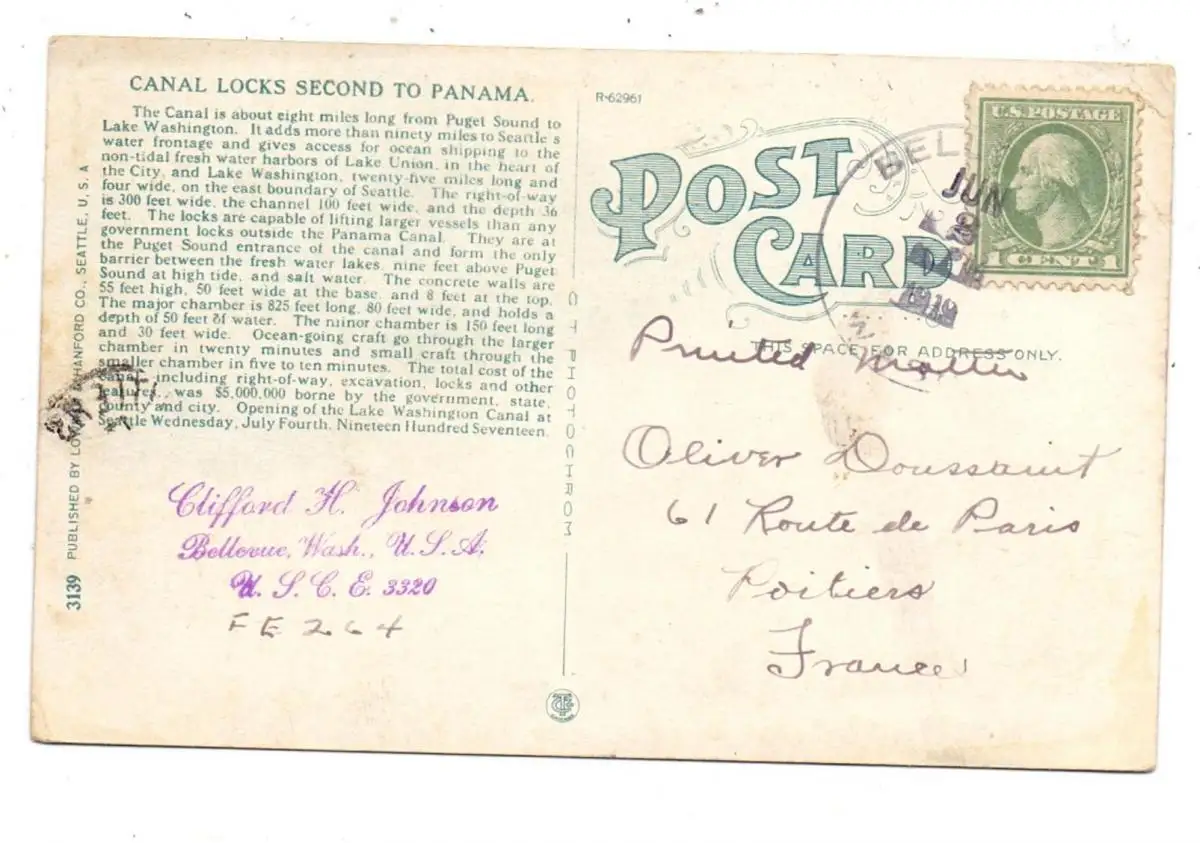 CANAL LOCKS SECOND TO PANAMA.
The Canal is about eight miles long from Puget Sound to
Lake Washington. It adds more than ninety miles to Seattle's
water frontage and gives access for ocean shipping to the
non-tidal fresh water harbors of Lake Union, in the heart of
the City, and Lake Washington, twenty-five miles long and
four wide, on the east boundary of Seattle. The right-of-way
is 300 feet wide, the channel 100 feet wide, and the depth 36
feet. The locks are capable of lifting larger vessels than any
government locks outside the Panama Canal. They are at
the Puget Sound entrance of the canal and form the only
barrier between the fresh water lakes, nine feet above Puget
Sound at high tide, and salt water. The concrete walls are
55 feet high, 50 feet wide at the base, and 8 feet at the top.
The major chamber is 825 feet long, 80 feet wide, and holds a
depth of 50 feet of water. The minor chamber is 150 feet long
and 30 feet wide. Ocean-going craft go through the larger
chamber in twenty minutes and small craft through the
smaller chamber in five to ten minutes. The total cost of the
canal, including right-of-way, excavation, locks and other
features, was $5,000,000 borne by the government, state,
county and city. Opening of the Lake Washington Canal at
Seattle Wednesday, July Fourth, Nineteen Hundred Seventeen.
3139 PUBLISHED BY HANFORD CO., SEATTLE, U. S. A
Clifford H. Johnson
Bellevue, Wash., U. S. A.
U. S. C. E. 3320
FE 264
C T PHOTOCHROM
R-62961
POST
CARD
THIS SPACE FOR ADDRESS ONLY.
BEL
JUN
U.S. POSTAGE
1 CENT 1
Printed Matter
Oliver Doussaint
61 Route de Paris
Poitiers
France